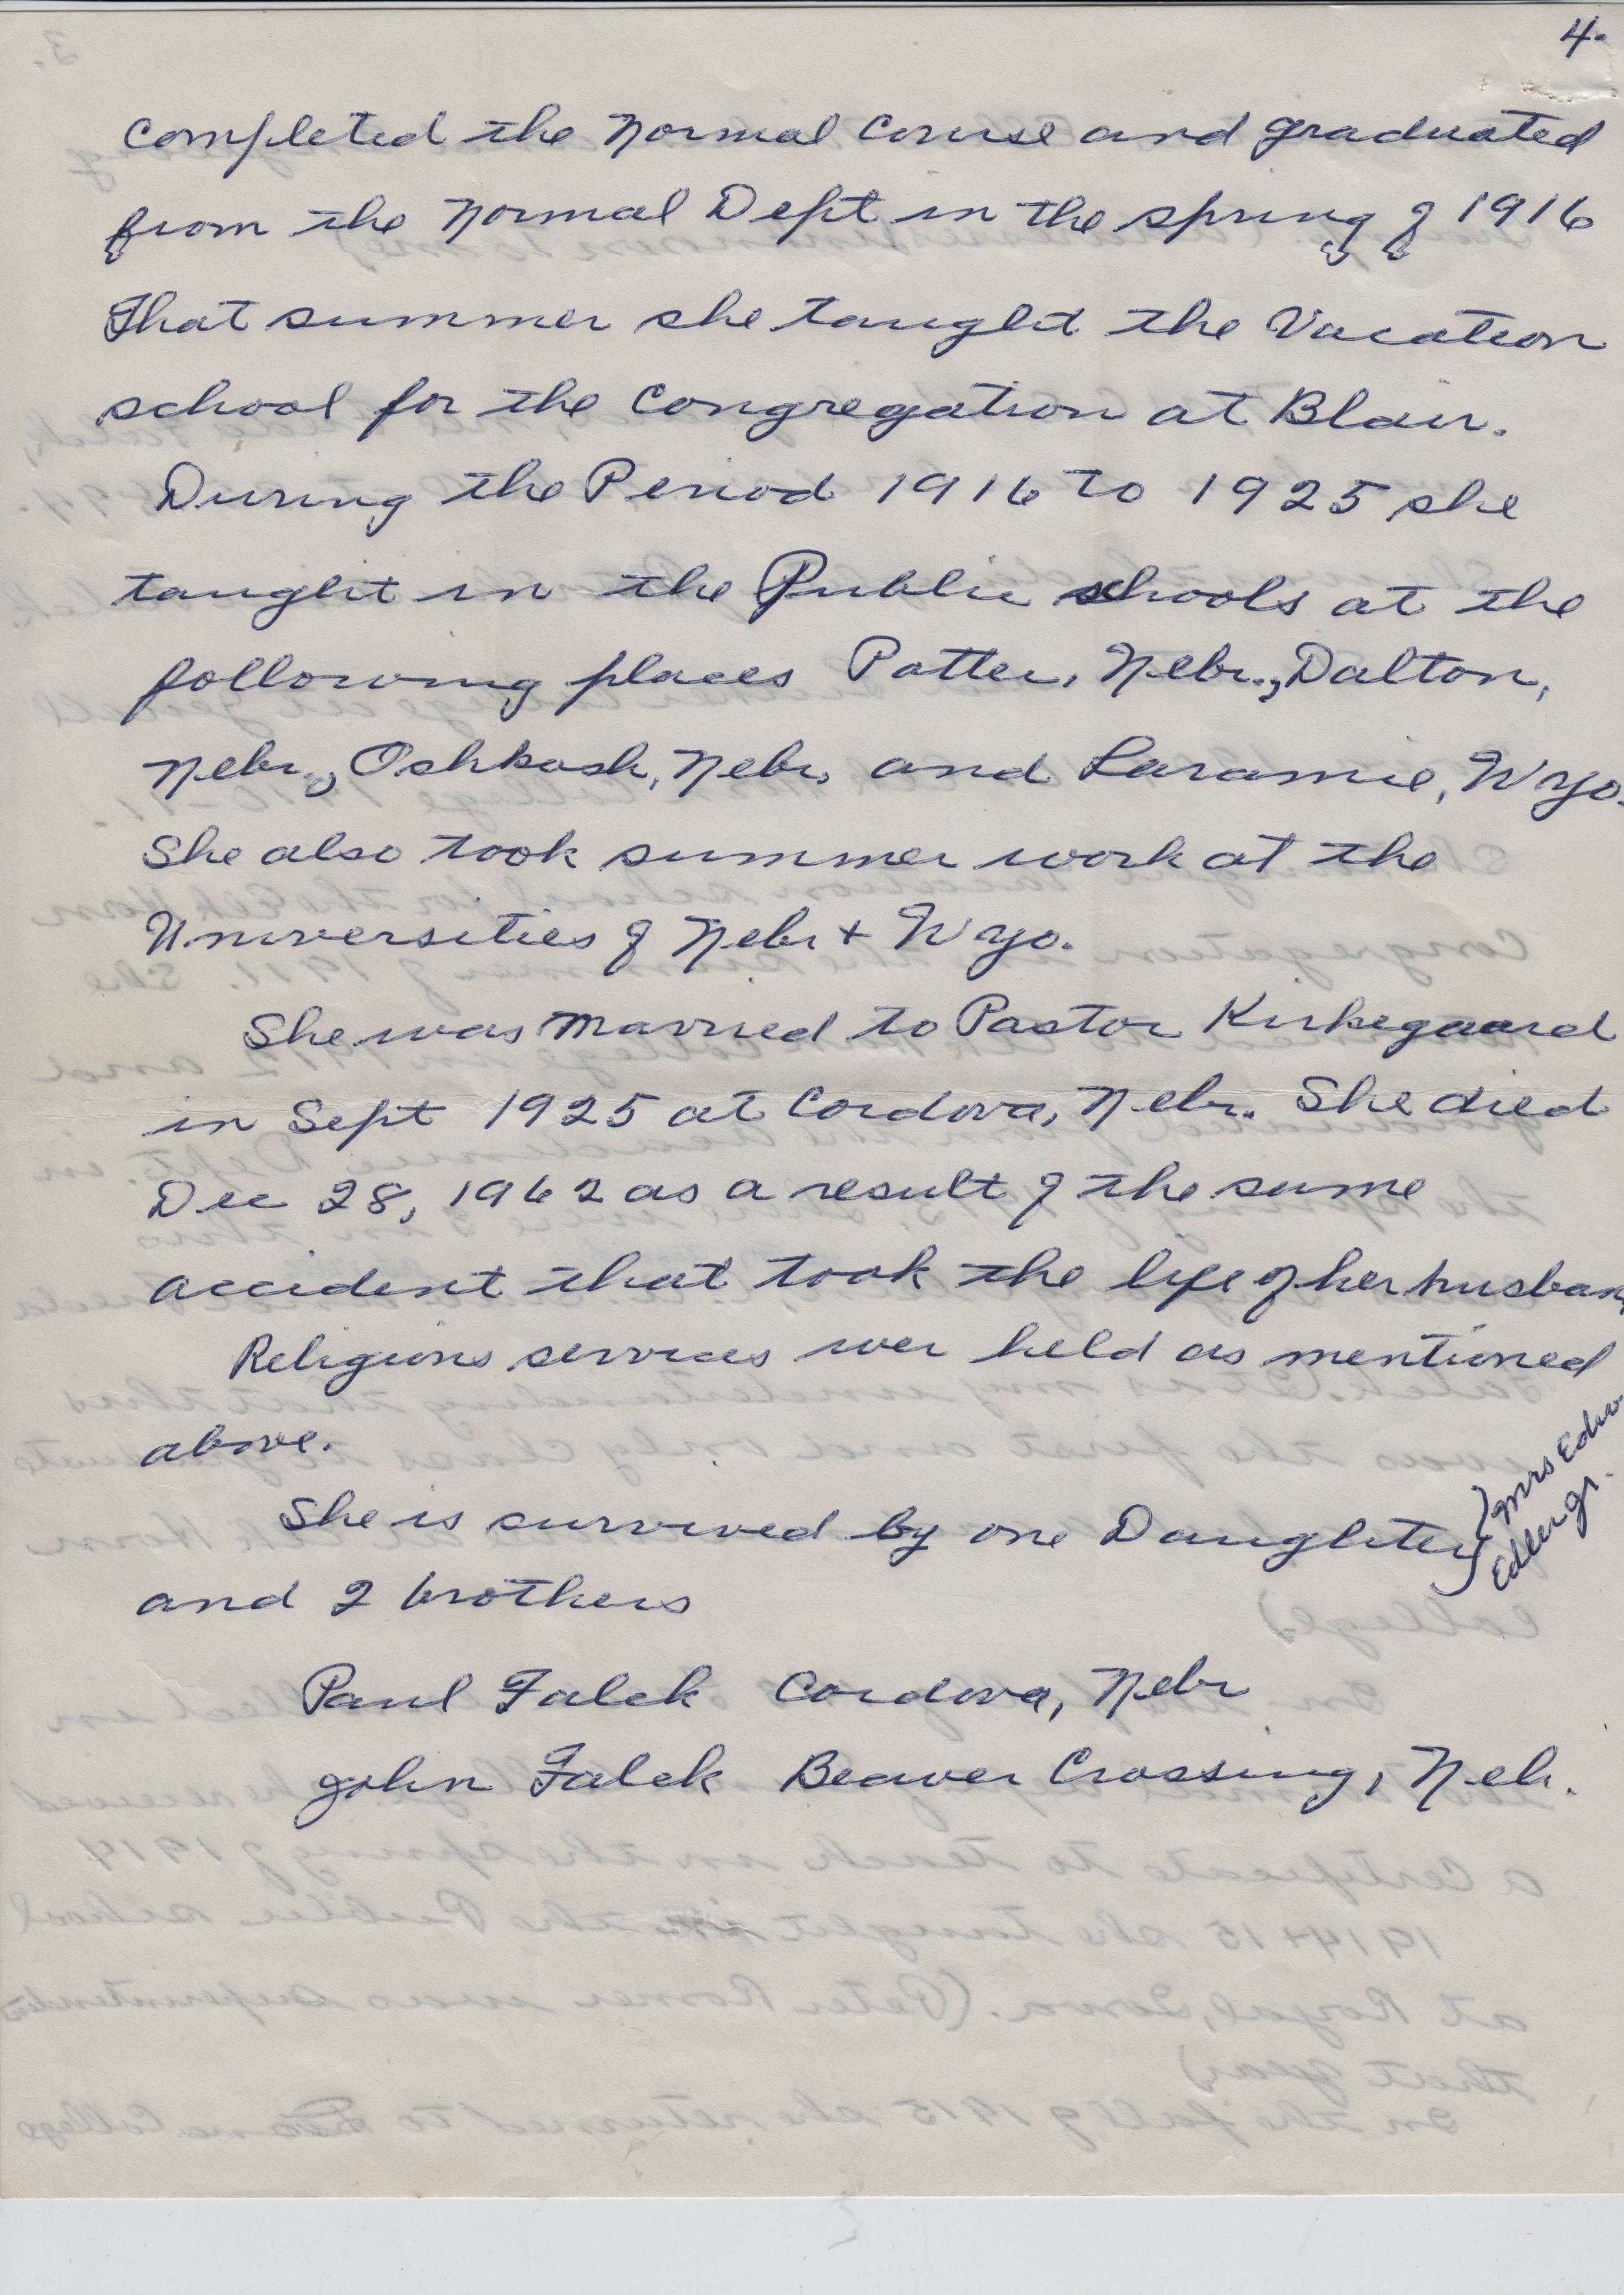 4.
completed the Normal Course and graduated
from the Normal Dept in the spring of 1916
That summer she taught the Vacation
school for the Congregation at Blair.
During the Period 1916 to 1925 she
taught in the Public schools at the
following places Potter, Nebr., Dalton,
Nebr., Oshkosh, Nebr. and Laramie, Wyo.
She also took summer work at the
Universities of Nebr + Wyo.
She was married to Pastor Kirkegaard
in Sept 1925 at Cordova, Nebr. She died
Dec 28, 1962 as a result of the same
accident that took the life of her husban
Religious services wer held as mentioned
above.
She is survived by one Daughter
} Mrs Edw
Edler jr.
and 2 brothers
Paul Falck Cordova, Nebr
John Falck Beaver Crossing, Neb.